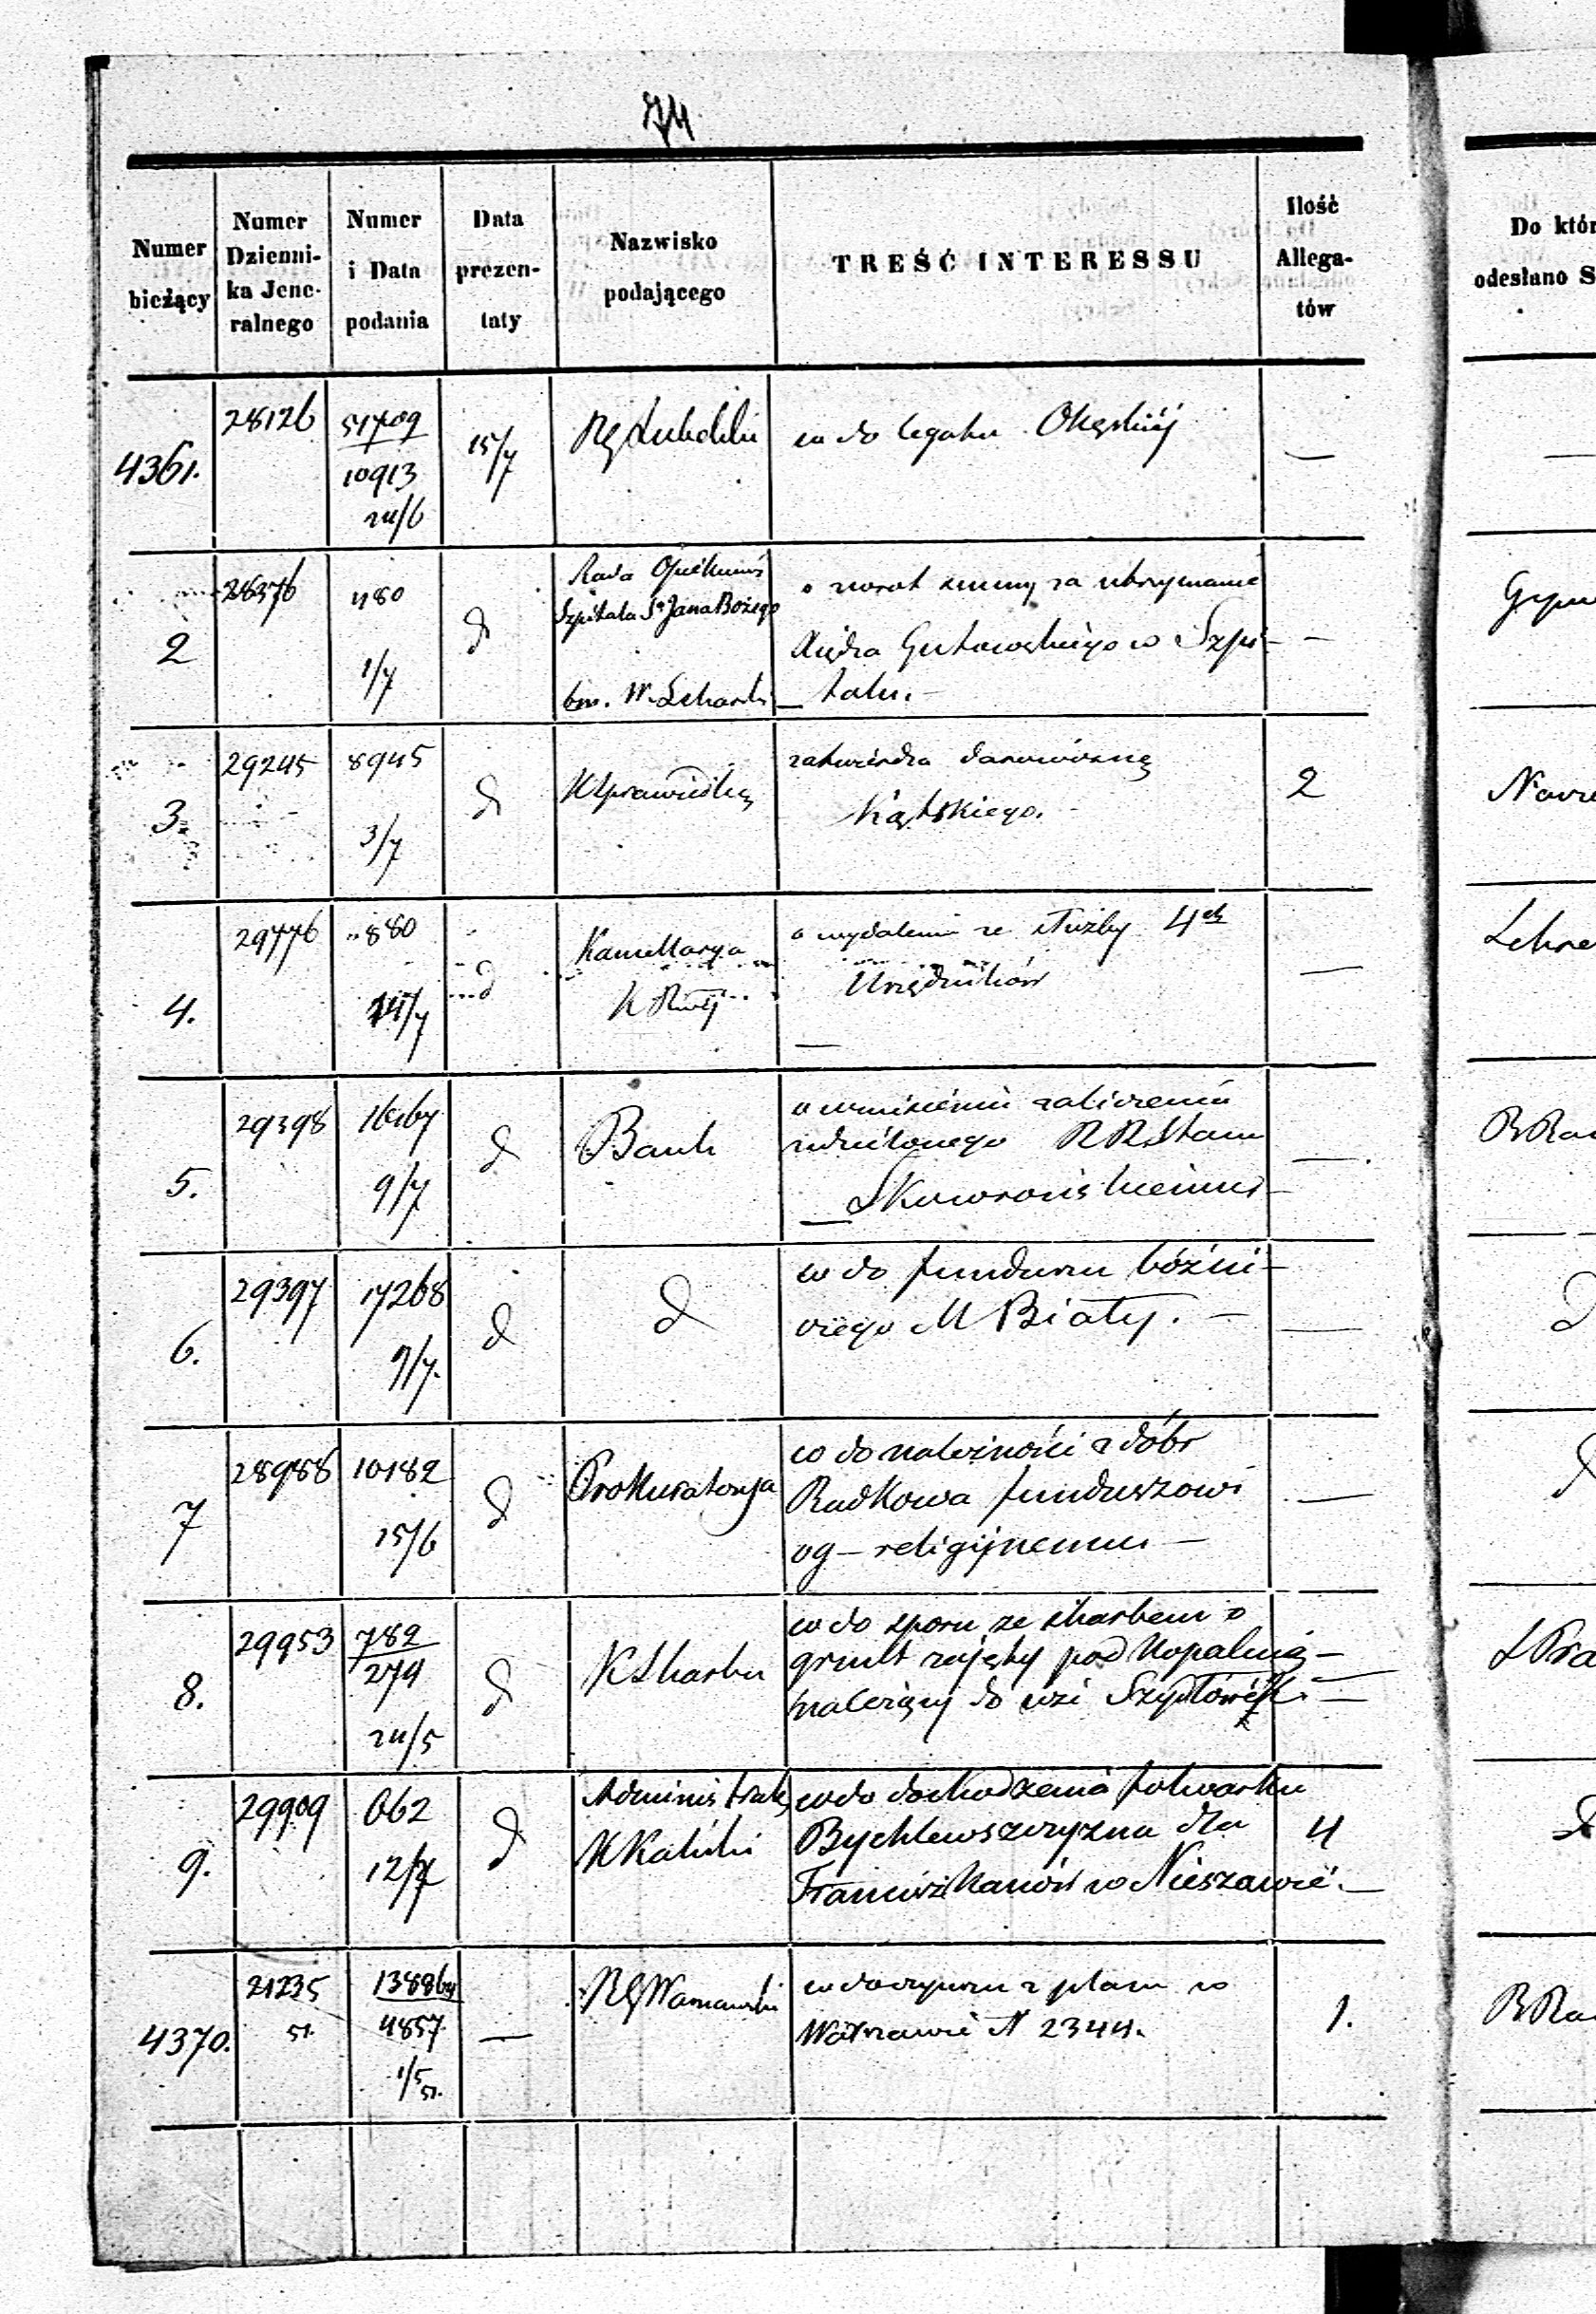 74
Numer bieżący
Numer Dzienni- ka Jene- ralnego
Numer i Data podania
Data prezen- taty
Nazwisko podającego
TREŚĆ INTERESSU
Ilość Allega- tów
Do któr
odesłano S
4361.
28126
51709
10913
24/6
15/7
RGLubelski
co do legatu Okęskiéj
—
2
28376
480
1/7
d
Rada Opiekuńs
Szpitala Sº Jana Bożego
o zwrot summy za utrzymanie
Xiędza Gutowskiego w Szpi-
talu.—
3.
29245
8945
3/7
d
KSprawiedliw
zatwierdza darowiznę
Kątskiego.
2
4.
29776
880
14/7
d
Kancellarya
o wydaleniu ze służby 4ch
Urzędników
—
5.
29398
9/7
d
Bank
udzielonego
Skowrońskiemu
—
6.
29397
17268
9/7.
d
d
co do funduszu bóżni-
czego M Biały.—
—
7
28988
10182
15/6
d
Prokuratorya
co do należności z dóbr
Radkowa funduszowi
og—religijnemu—
—
8.
29953
782
279
24/5
d
KSkarbu
co do sporu ze skarbem o
grunt zajęty pod kopalnią—
należący do wsi
9.
29909
662
12/7
d
Administrat
KKaliski
co do dochodzenia folwarku
Bychlewszczyzna dla
Franciszkanów w Nieszawie.—
4
4370.
21235
51.
4857
1/5
51.
—
RGWarszawski
co do czynszu z placu w
Warszawie N 2344.
1.